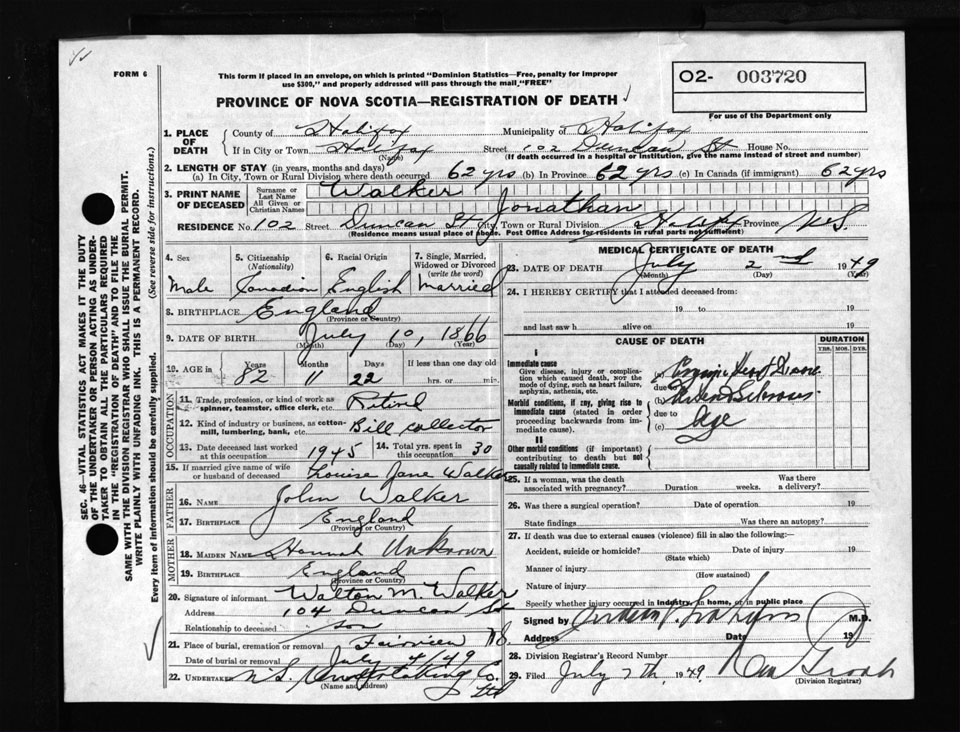 FORM 6
This form if placed in an envelope, on which is printed "Dominion Statistics—Free, penalty for improper
use $300," and properly addressed will pass through the mail "FREE"
PROVINCE OF NOVA SCOTIA—REGISTRATION OF DEATH
O2- 003720
For use of the Department only
SEC. 46—VITAL STATISTICS ACT MAKES IT THE DUTY
OF THE UNDERTAKER OR PERSON ACTING AS UNDER-
TAKER TO OBTAIN ALL THE PARTICULARS REQUIRED
IN THE "REGISTRATION OF DEATH" AND TO FILE THE
SAME WITH THE DIVISION REGISTRAR WHO SHALL ISSUE THE BURIAL PERMIT.
WRITE PLAINLY WITH UNFADING INK. THIS IS A PERMANENT RECORD.
Every item of information should be carefully supplied. (See reverse side for instructions.)
1. PLACE OF DEATH County of Halifax Municipality of Halifax
If in City or Town Halifax (Name) Street 102 Duncan St House No.
(If death occurred in a hospital or institution, give the name instead of street and number)
2. LENGTH OF STAY (in years, months and days)
(a) In City, Town or Rural Division where death occurred 62 yrs (b) In Province 62 yrs (c) In Canada (if immigrant) 62 yrs
3. PRINT NAME OF DECEASED Surname or Last Name Walker
All Given or Christian Names Jonathan
RESIDENCE No. 102 Street Duncan St City, Town or Rural Division Halifax Province N S
(Residence means usual place of abode. Post Office Address for residents in rural parts not sufficient)
4. Sex 5. Citizenship (Nationality) 6. Racial Origin 7. Single, Married, Widowed or Divorced (write the word)
Male Canadian English Married
8. BIRTHPLACE England
(Province or Country)
9. DATE OF BIRTH July 10, 1866
(Month) (Day) (Year)
10. AGE in Years Months Days If less than one day old
82 11 22 hrs. or min.
OCCUPATION
11. Trade, profession or kind of work as spinner, teamster, office clerk, etc. Retired
12. Kind of industry or business, as cotton-mill, lumbering, bank, etc. Bill collector
13. Date deceased last worked at this occupation 1945 14. Total yrs. spent in this occupation 30
15. If married give name of wife or husband of deceased Louise Jane Walker
FATHER
16. NAME John Walker
17. BIRTHPLACE England
(Province or Country)
MOTHER
18. MAIDEN NAME Hannah Unknown
19. BIRTHPLACE England
(Province or Country)
20. Signature of informant Walton M. Walker
Address 104 Duncan St
Relationship to deceased son
21. Place of burial, cremation or removal Fairview N.S.
Date of burial or removal July 4/49
22. UNDERTAKER N.S. Undertaking Co. Ltd
(Name and address)
MEDICAL CERTIFICATE OF DEATH
23. DATE OF DEATH July 2nd 1949
(Month) (Day) (Year)
24. I HEREBY CERTIFY that I attended deceased from:
19 to 19
and last saw h alive on 19
CAUSE OF DEATH
DURATION
YRS. MOS. DYS.
I
Immediate cause
Give disease, injury or complication which caused death, not the mode of dying, such as heart failure, asphyxia, asthenia, etc.
(a) Heart Disease
due to
Morbid conditions, if any, giving rise to immediate cause (stated in order proceeding backwards from immediate cause).
(b)
due to
(c) Age
II
Other morbid conditions (if important) contributing to death but not causally related to immediate cause.
25. If a woman, was the death associated with pregnancy? Duration weeks. Was there a delivery?
26. Was there a surgical operation? Date of operation 19
State findings Was there an autopsy?
27. If death was due to external causes (violence) fill in also the following:—
Accident, suicide or homicide? (State which) Date of injury 19
Manner of injury
(How sustained)
Nature of injury
Specify whether injury occurred in industry, in home, or in public place
Signed by M.D.
Address Date 19
28. Division Registrar's Record Number
29. Filed July 7th, 1949
(Division Registrar)